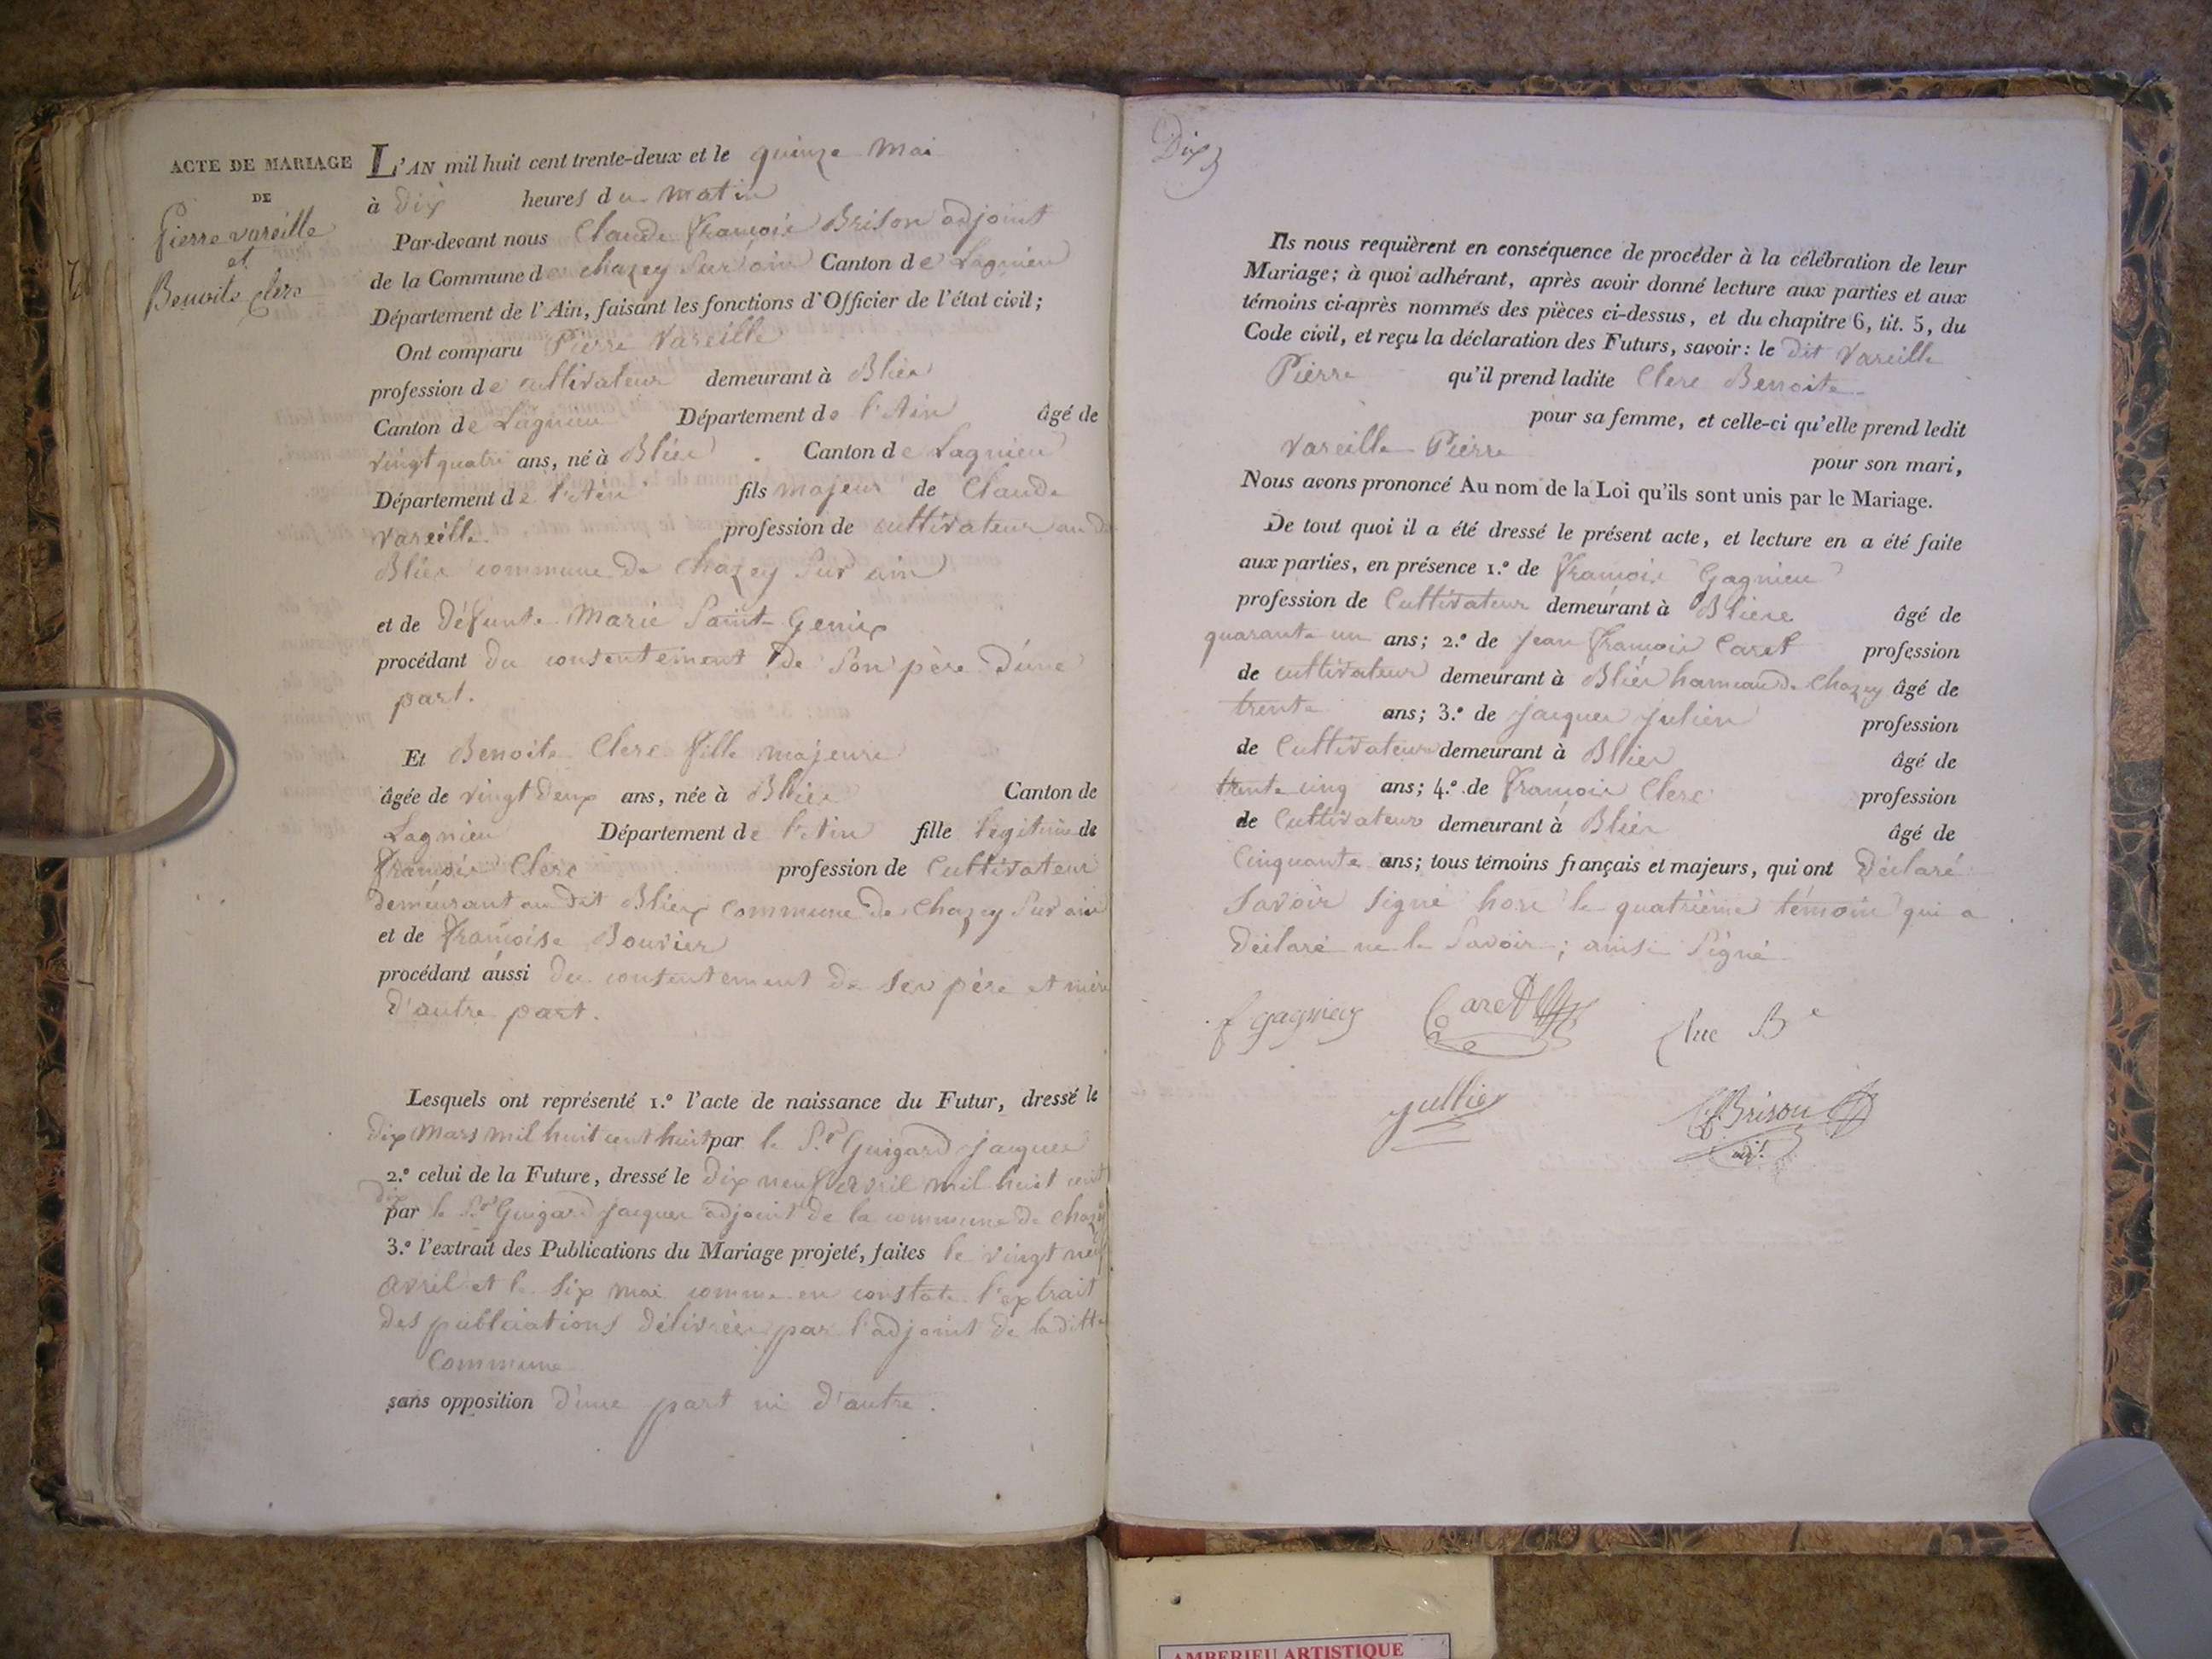 ACTE DE MARIAGE
DE
Pierre vareille
et
Benoite Clerc
L'AN mil huit cent trente-deux et le quinze Mai
à dix heures du matin
Par-devant nous Claude François Brison adjoint
de la Commune de chazey sur ain Canton de Lagnieu
Département de l'Ain, faisant les fonctions d'Officier de l'état civil;
Ont comparu Pierre Vareille
profession de cultivateur demeurant à Blies
Canton de Lagnieu Département de l'Ain âgé de
vingt quatre ans, né à Blies . Canton de Lagnieu
Département de l'Ain fils majeur de Claude
vareille. profession de cultivateur au dit
Blies commune de Chazey sur ain
et de défunte Marie Saint-Genix
procédant du consentement de son père d'une
part.
Et Benoite Clerc fille majeure
âgée de vingt deux ans, née à Blies Canton de
Lagnieu Département de l'Ain fille légitime de
François Clerc profession de Cultivateur
demeurant au dit Blies commune de Chazey sur ain
et de Françoise Bouvier
procédant aussi du consentement de ses père et mère
d'autre part.
Lesquels ont représenté 1.º l'acte de naissance du Futur, dressé le
dix Mars mil huit cent huit par le S.r Guigard jacques
2.º celui de la Future, dressé le dix neuf avril mil huit cent
dix
par le S.r Guigard jacques adjoint de la commune de Chazey
3.º l'extrait des Publications du Mariage projeté, faites le vingt neuf
avril et le six mai comme en constate l'extrait
des publciations délivrées par l'adjoint de la ditte
Commune
sans opposition d'une part ni d'autre.
Dix
Ils nous requièrent en conséquence de procéder à la célébration de leur
Mariage; à quoi adhérant, après avoir donné lecture aux parties et aux
témoins ci-après nommés des pièces ci-dessus, et du chapitre 6, tit. 5, du
Code civil, et reçu la déclaration des Futurs, savoir: le dit Vareille
Pierre qu'il prend ladite Clerc Benoite
pour sa femme, et celle-ci qu'elle prend ledit
Vareille Pierre pour son mari,
Nous avons prononcé Au nom de la Loi qu'ils sont unis par le Mariage.
De tout quoi il a été dressé le présent acte, et lecture en a été faite
aux parties, en présence 1.º de François Gagnieu
profession de Cultivateur demeurant à Bliere âgé de
quarante un ans; 2.º de Jean François Caret profession
de cultivateur demeurant à Blies hameau de Chazey âgé de
trente ans; 3.º de jacques Julien profession
de Cultivateur demeurant à Blies âgé de
trente cinq ans; 4.º de François Clerc profession
de Cultivateur demeurant à Blies âgé de
Cinquante ans; tous témoins français et majeurs, qui ont déclaré
savoir signé hors le quatrième témoin qui a
déclaré ne le savoir; ainsi signé
f gagnieu Caret Clerc Be
jullien Brison
adj.t
AMBERIEU ARTISTIQUE